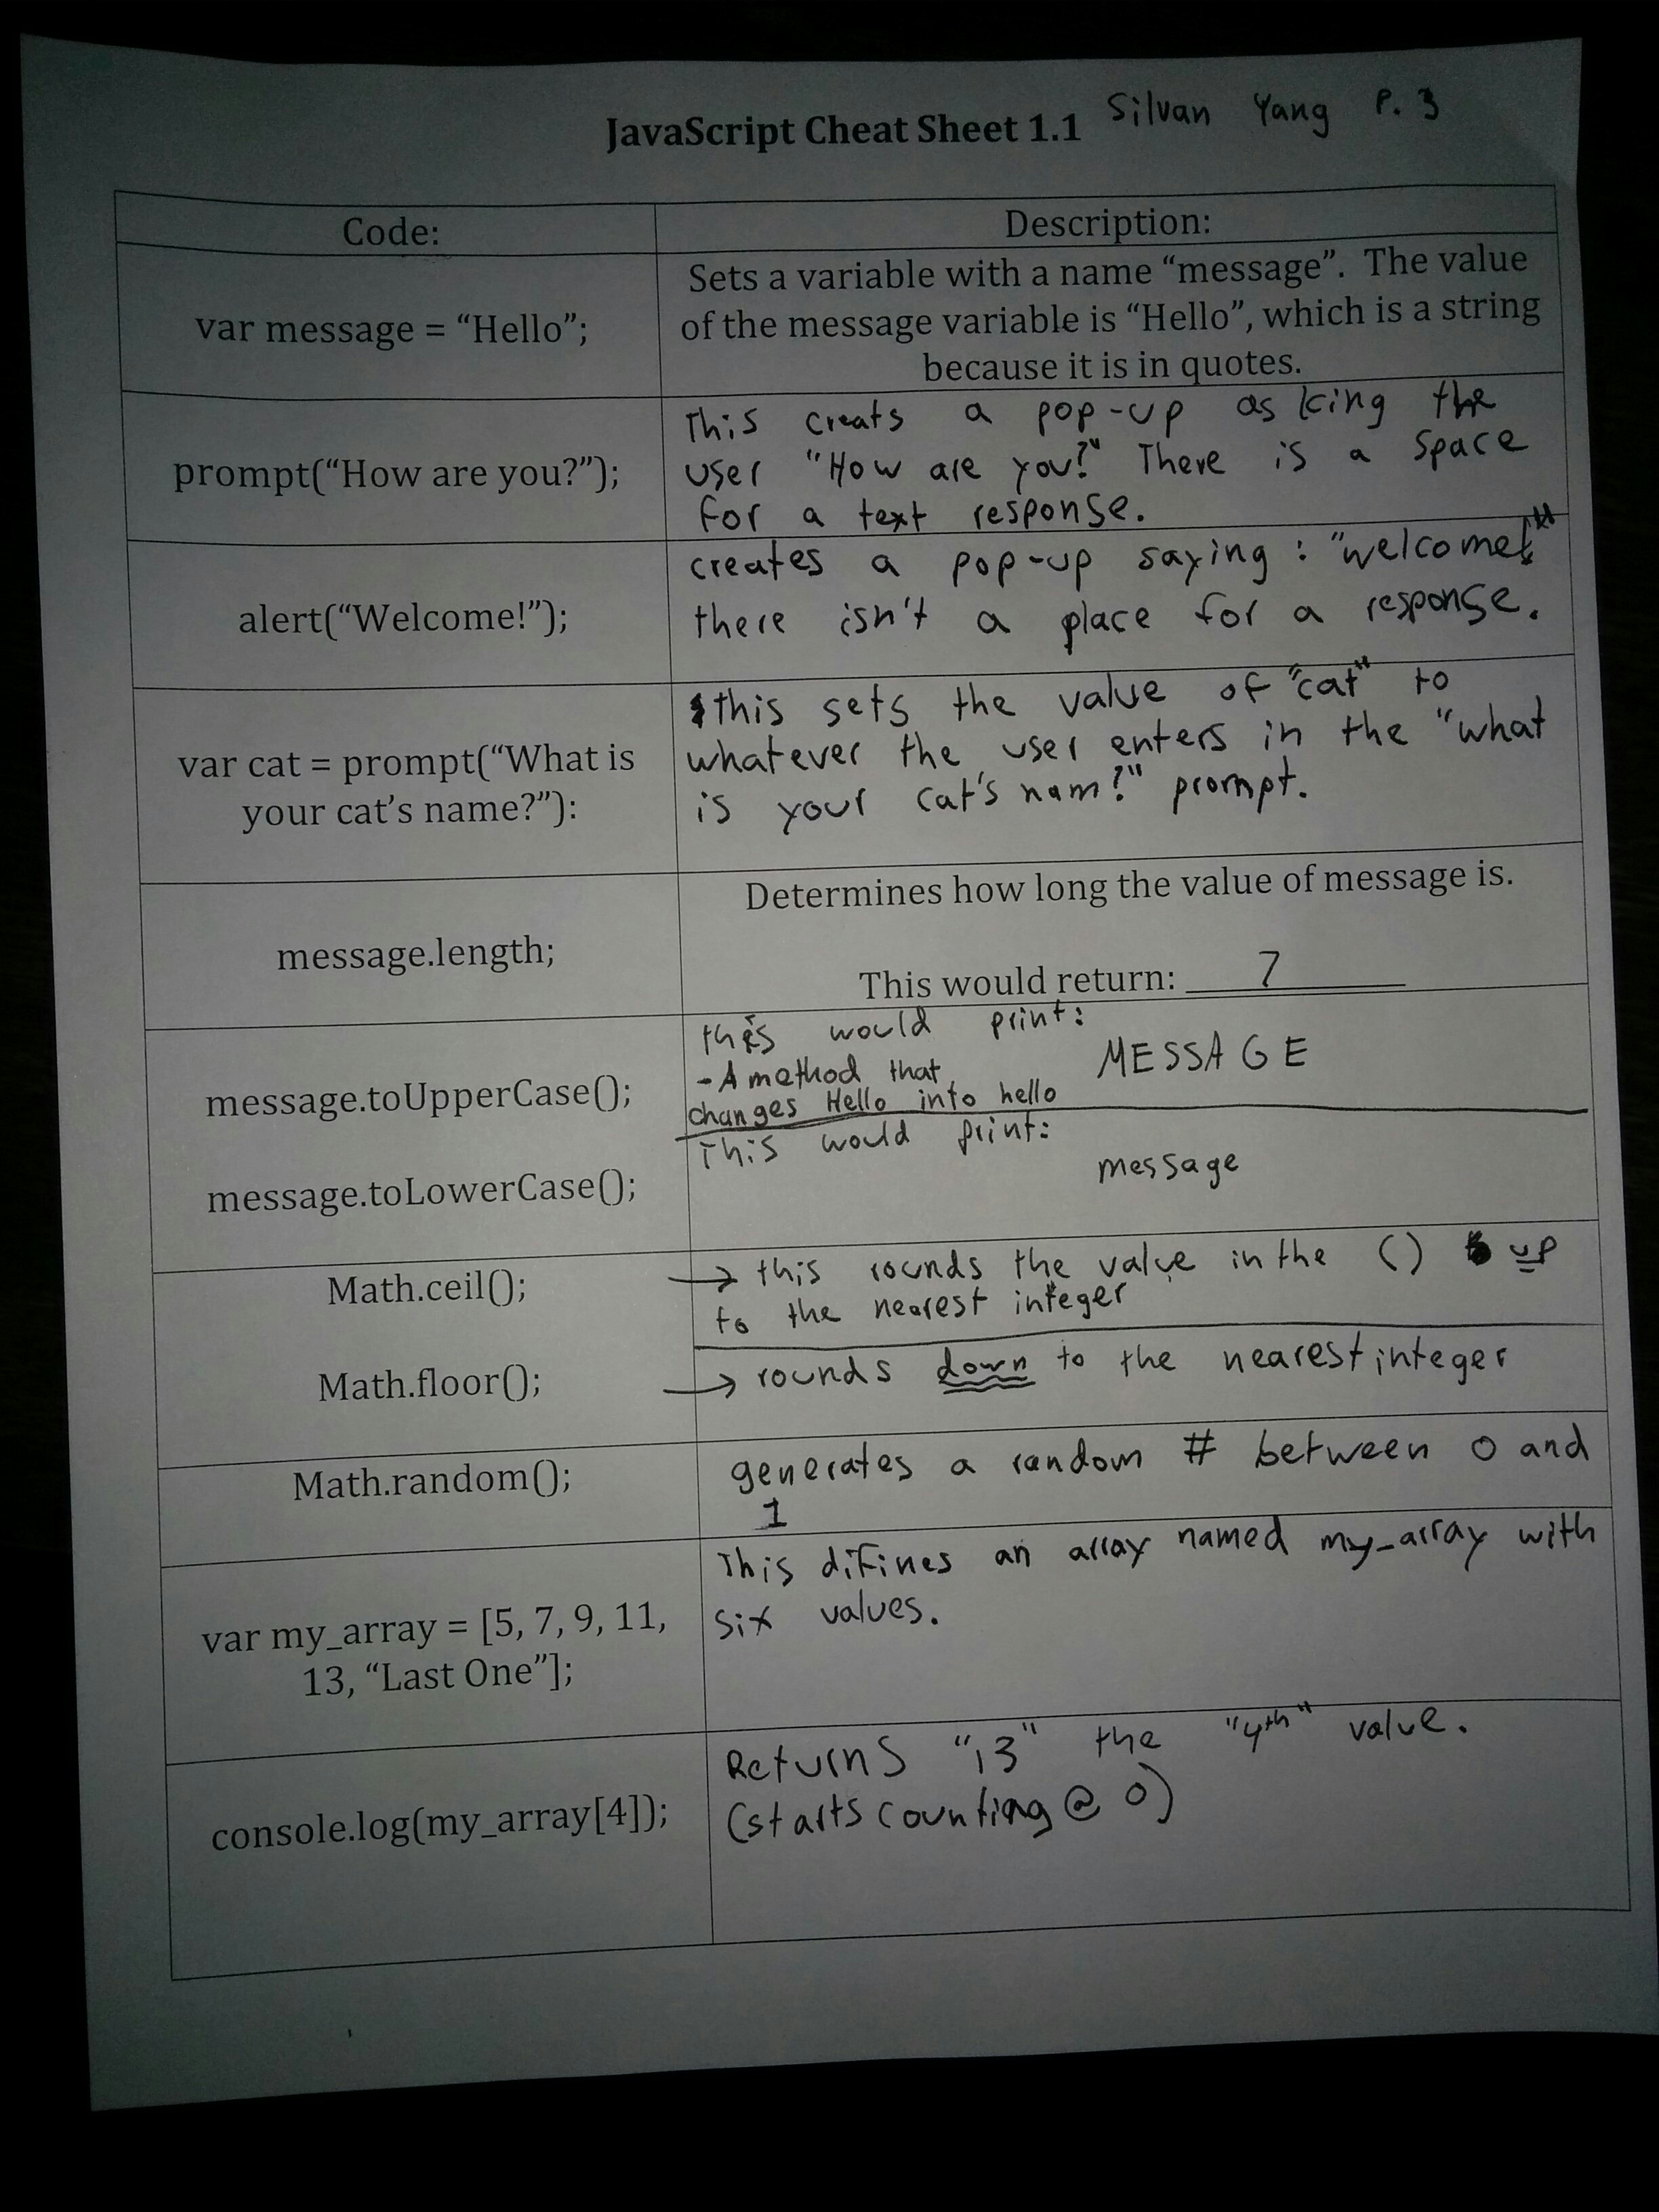 JavaScript Cheat Sheet 1.1 Silvan Yang P. 3
Code:
Description:
var message = “Hello”;
Sets a variable with a name “message”. The value
of the message variable is “Hello”, which is a string
because it is in quotes.
prompt(“How are you?”);
This creats a pop-up asking the
user "How are you?" There is a space
for a text response.
alert(“Welcome!”);
creates a pop-up saying : "welcome!"
there isn't a place for a response.
var cat = prompt(“What is
your cat’s name?”):
this sets the value of "cat" to
whatever the user enters in the "what
is your cat's nam?" prompt.
message.length;
Determines how long the value of message is.
This would return: 7
message.toUpperCase();
this would print:
- A method that
changes Hello into hello
MESSAGE
message.toLowerCase();
This would print:
message
Math.ceil();
→ this rounds the value in the () up
to the nearest integer
Math.floor();
→ rounds down to the nearest integer
Math.random();
generates a random # between 0 and
1
var my_array = [5, 7, 9, 11,
13, “Last One”];
This difines an array named my_array with
six values.
console.log(my_array[4]);
Returns "13" the "4th" value.
(starts counting @ 0)